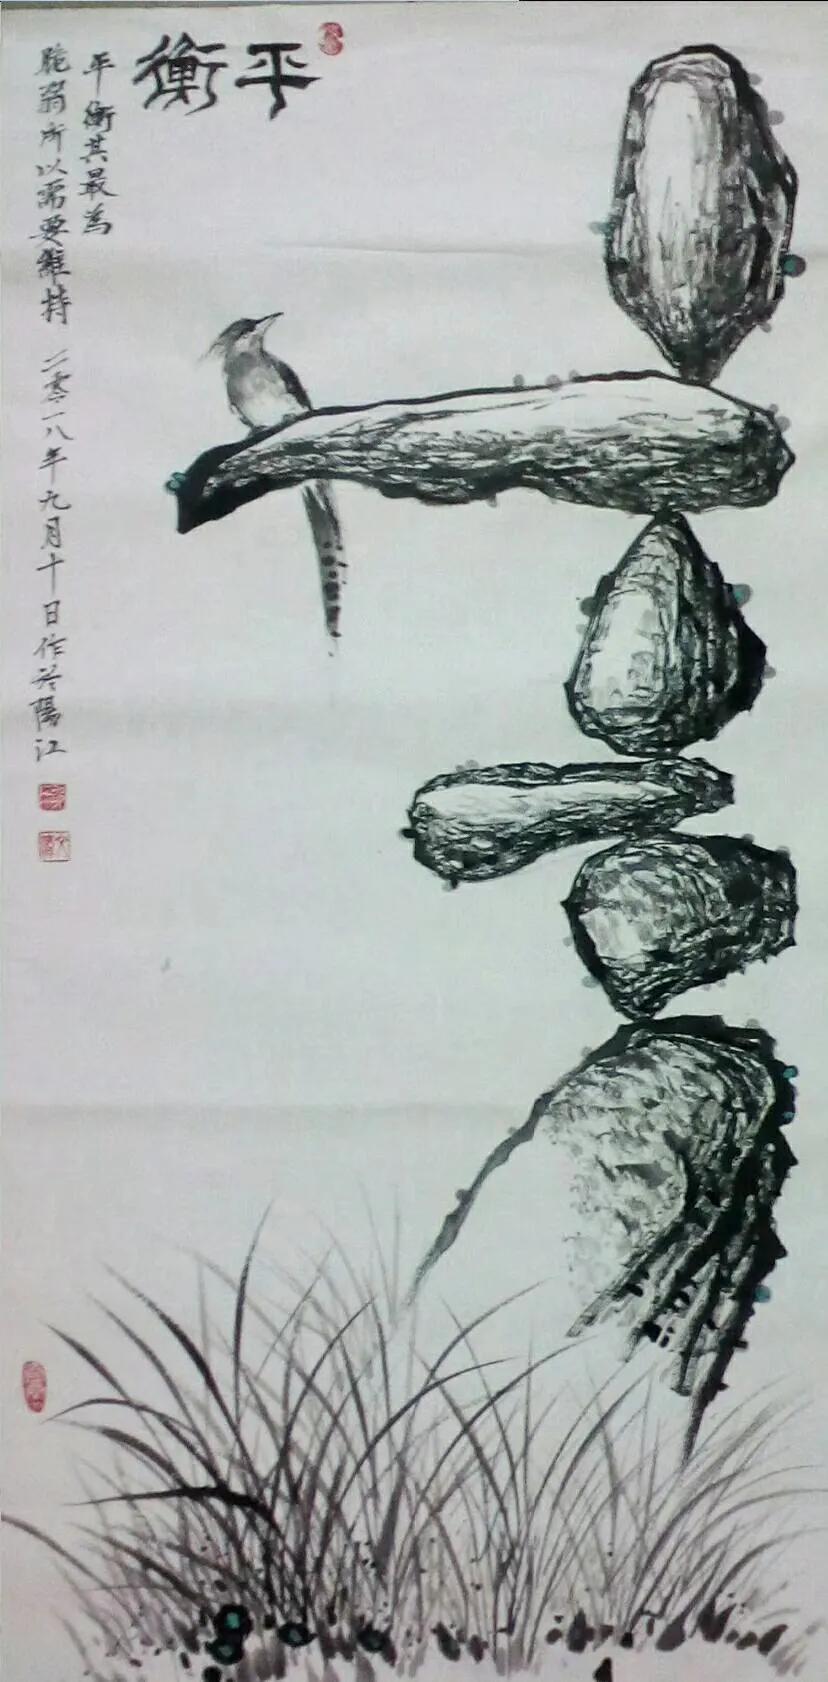 平衡
平衡其最為
脆弱所以需要維持 二零一八年九月十日作於陽江